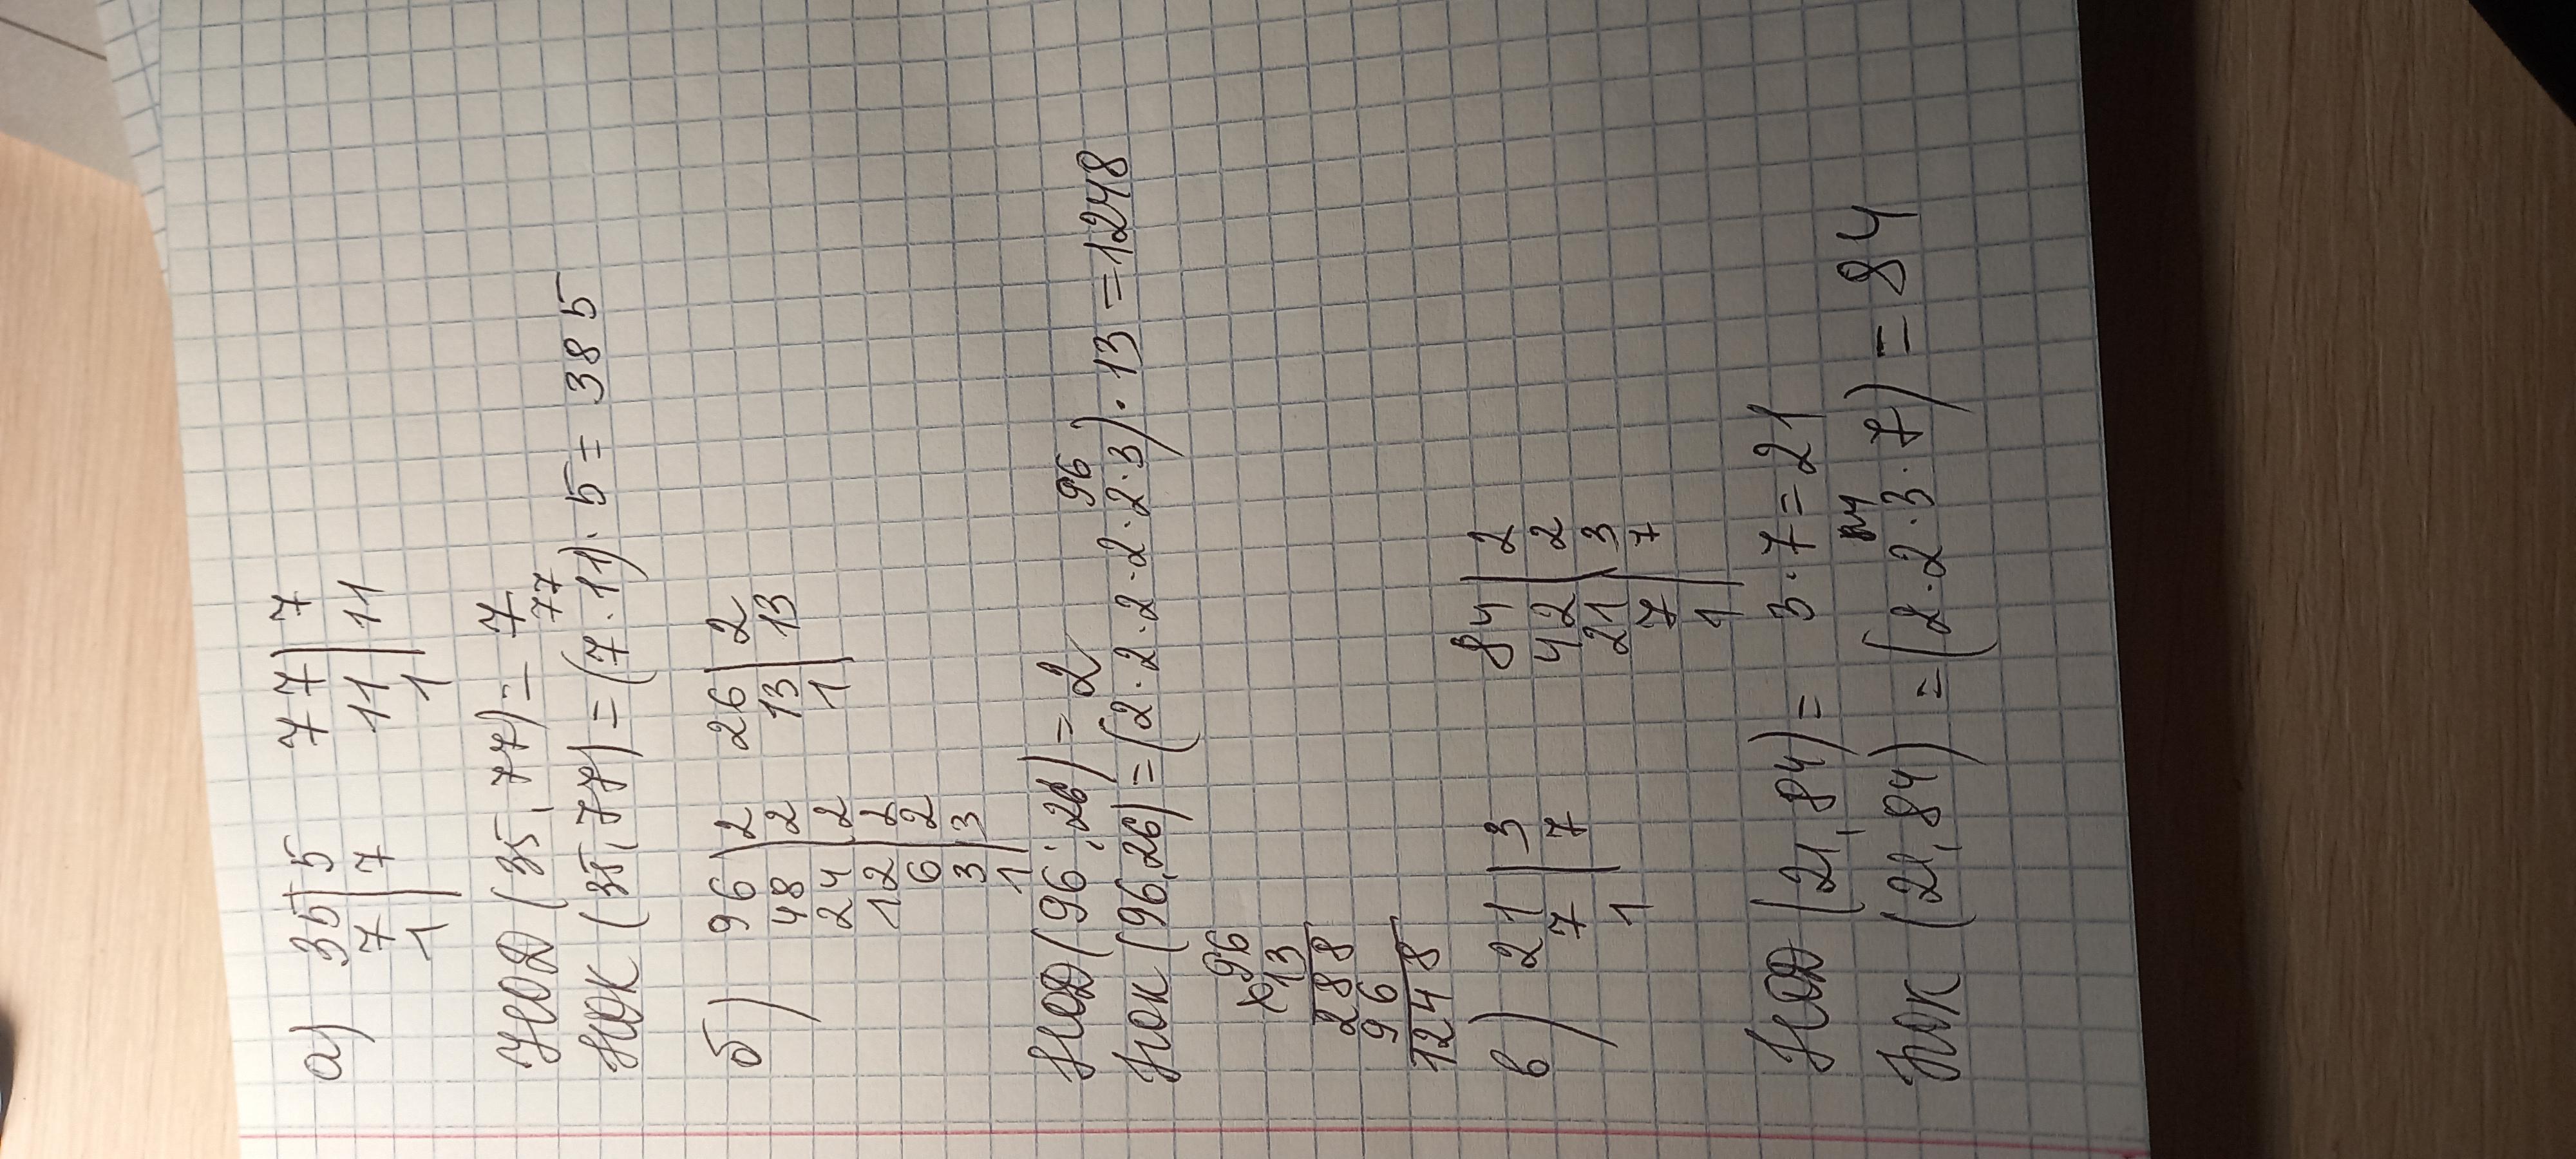 а) 35 | 5 77 | 7
7 | 7 11 | 11
1 | 1 |
НОД (35, 77) = 7
77
НОК (35, 77) = (7 · 11) · 5 = 385
б) 96 | 2 26 | 2
48 | 2 13 | 13
24 | 2 1 |
12 | 2
6 | 2
3 | 3
1 |
НОД (96; 26) = 2
96
НОК (96, 26) = (2 · 2 · 2 · 2 · 2 · 3) · 13 = 1248
×96
13
288
96
1248
в) 21 | 3 84 | 2
7 | 7 42 | 2
1 | 21 | 3
7 | 7
1 |
НОД (21, 84) = 3 · 7 = 21
НОК (21, 84) = (2 · 2 · 3 · 7) = 84